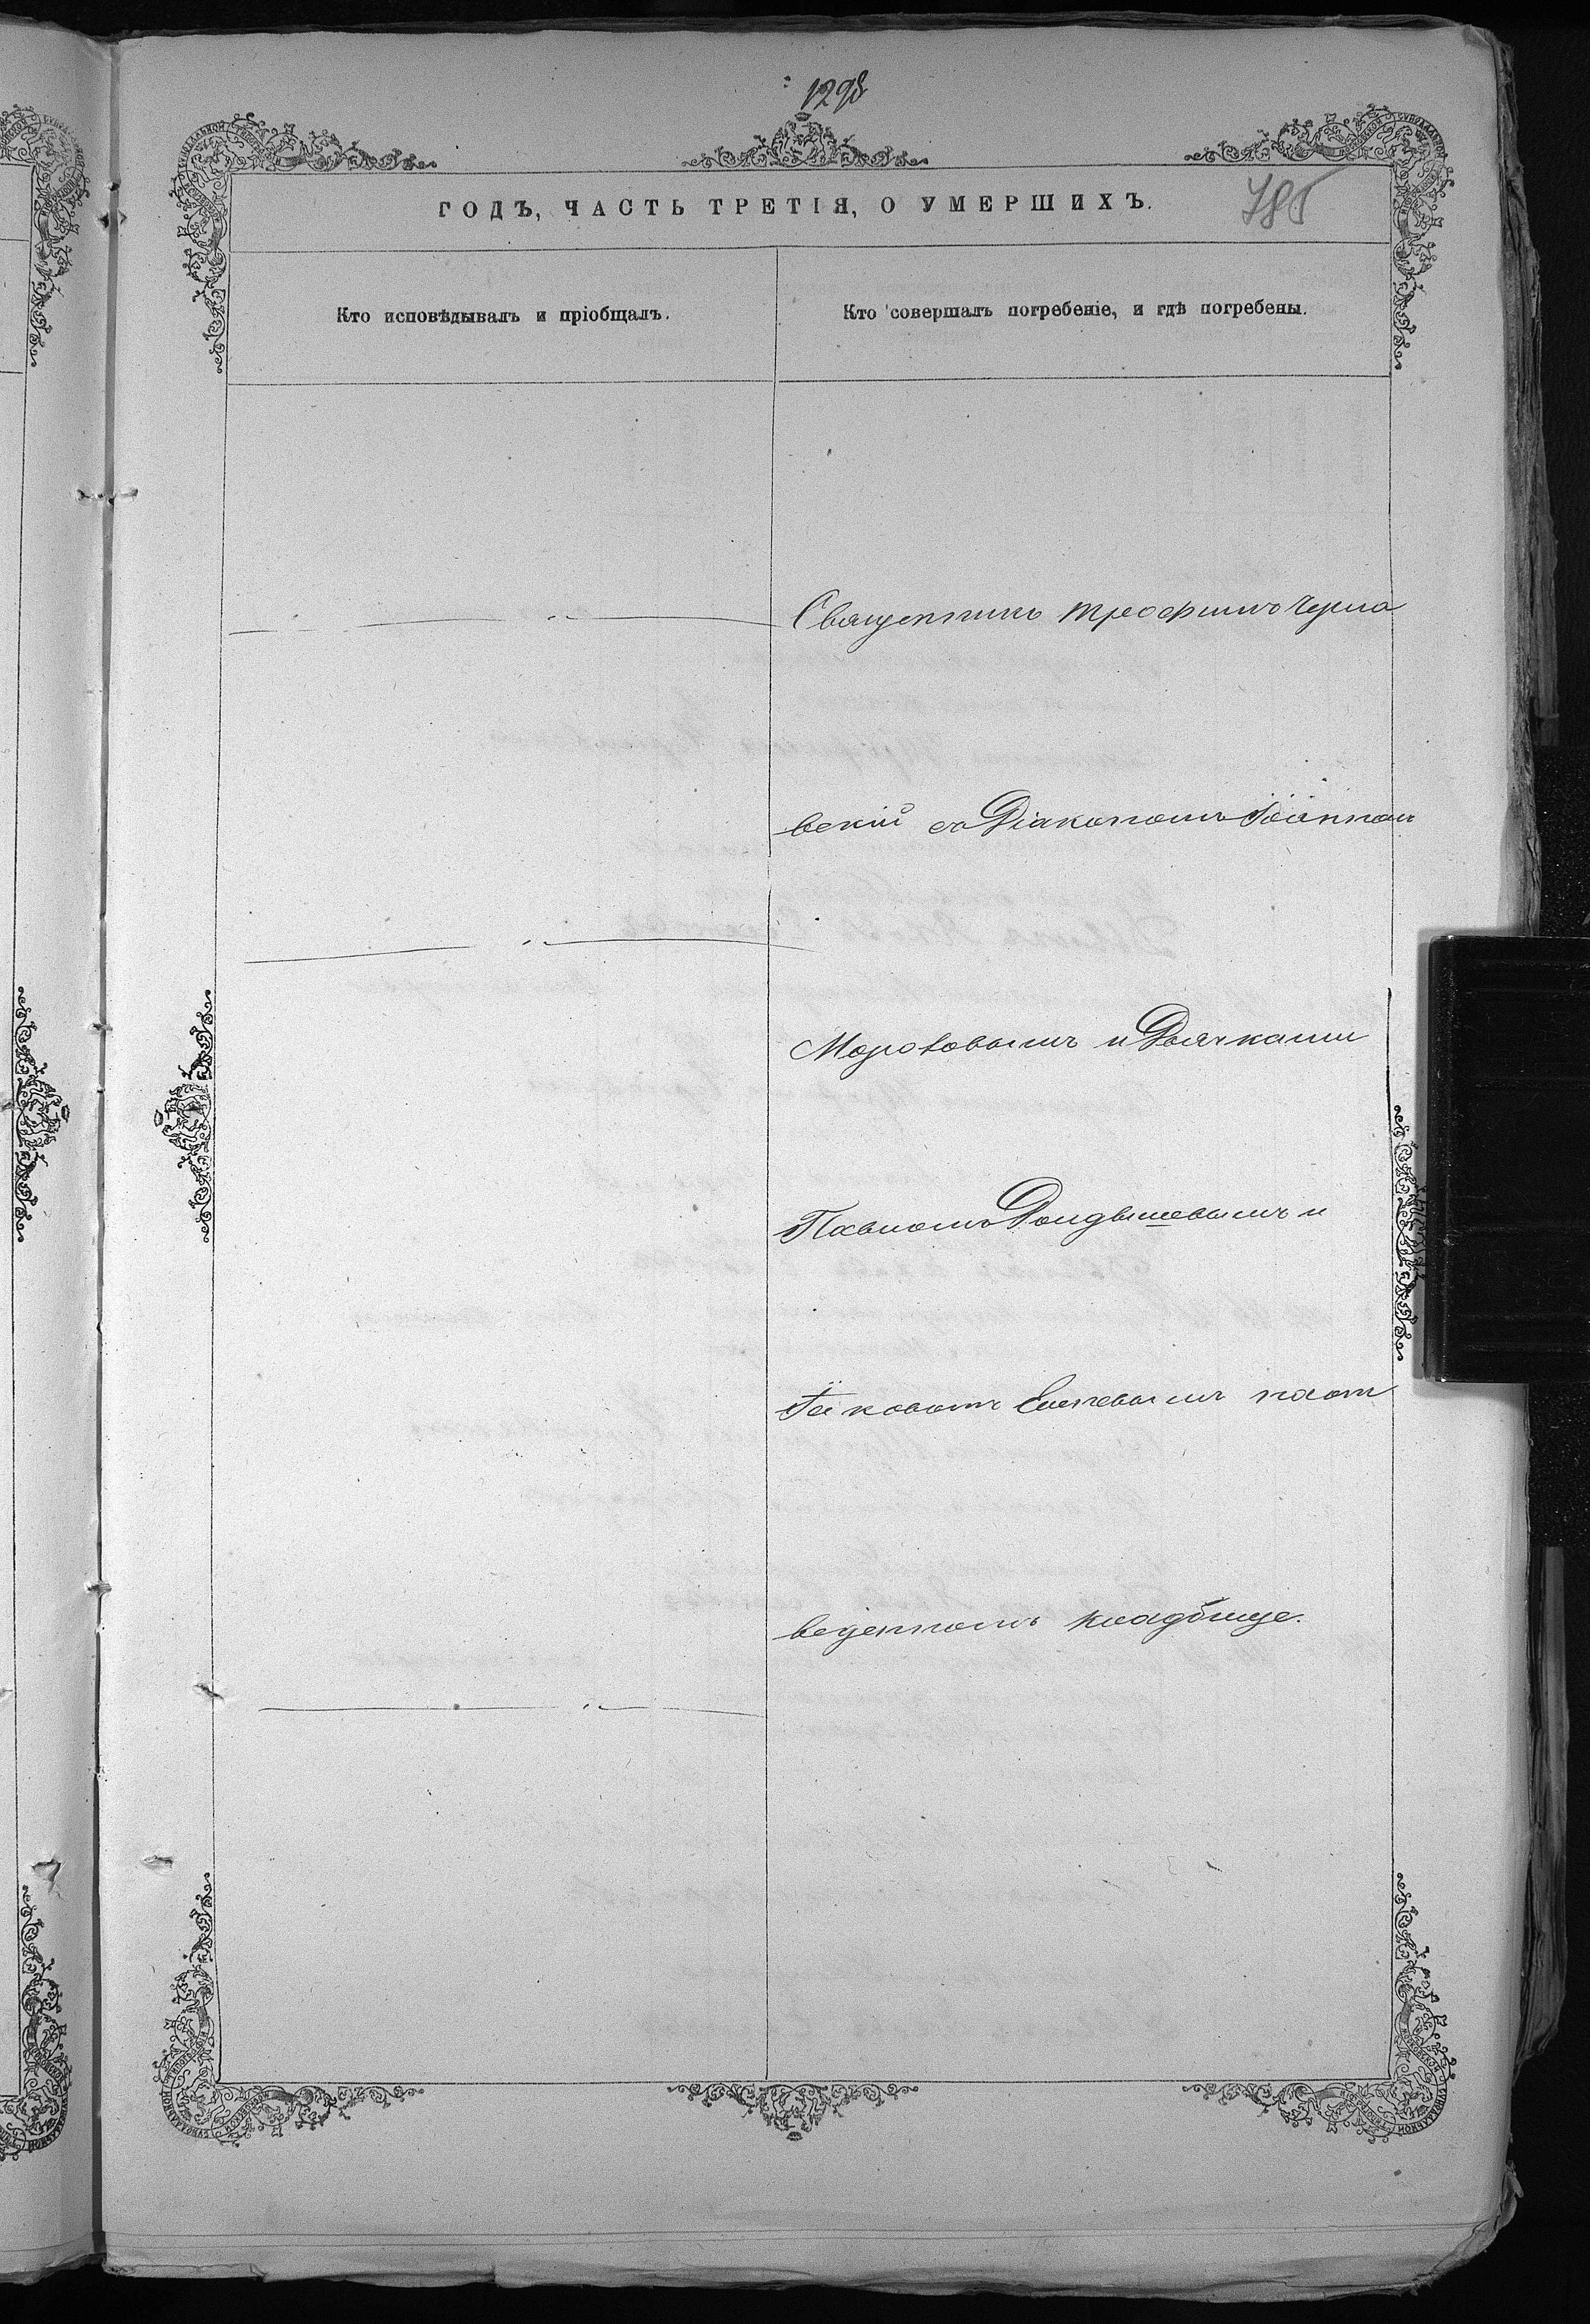 1298
ГОДЪ, ЧАСТЬ ТРЕТІЯ, О УМЕРШИХЪ.
785
Кто исповѣдывалъ и пріобщалъ.
Кто совершалъ погребеніе, и гдѣ погребены.
Священникъ Трофимъ Черма
вскій съ Діакономъ Іоанном
Морововымъ и Дьячками
Павломъ Домдышевымъ и
Іаковомъ Емевымъ на от
веденномъ кладбище.